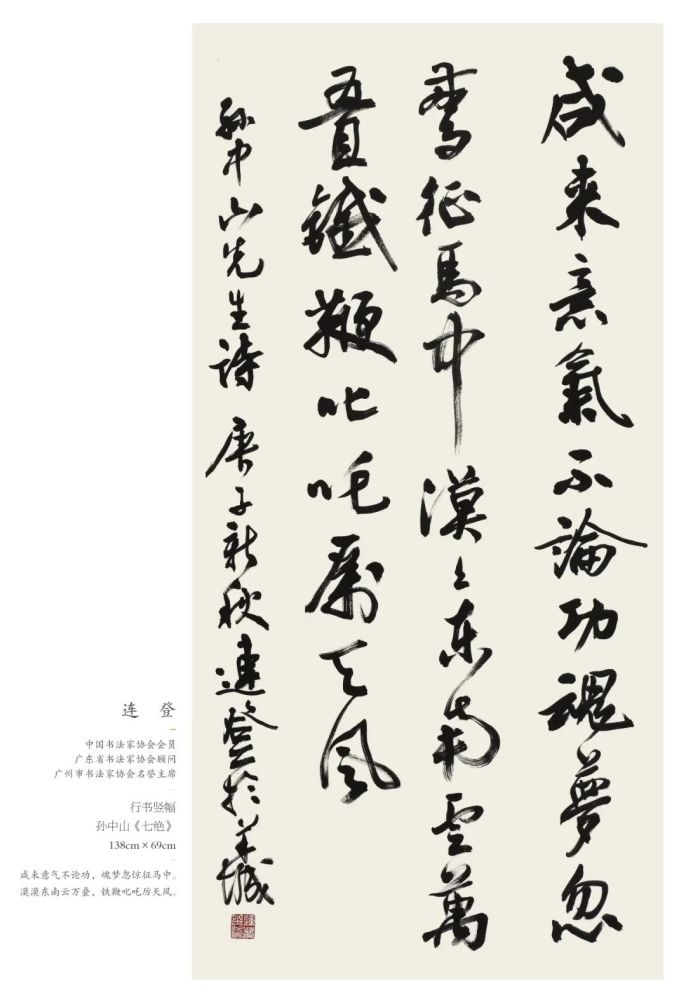 咸来意氣不論功魂夢忽
驚征馬中漠々東南雲萬
疊鐵鞭叱吒厲天風
孫中山先生詩 庚子新秋連登於羊城
连 登
中国书法家协会会员
广东省书法家协会顾问
广州市书法家协会名誉主席
行书竖幅
孙中山《七绝》
138cm×69cm
咸来意气不论功，魂梦忽惊征马中。
漠漠东南云万叠，铁鞭叱吒厉天风。